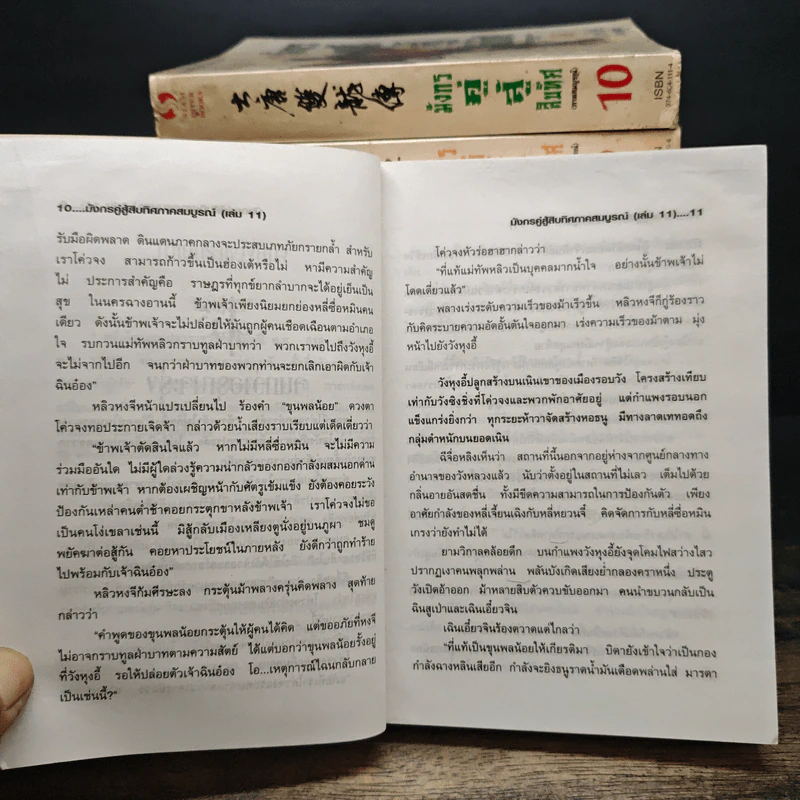 大唐雙龍傳
มังกร
คู่
สู้
สิบทิศ
10
ISBN
10....มังกรคู่สู้สิบทิศภาคสมบูรณ์ (เล่ม 11)
รับมือผิดพลาด ดินแดนภาคกลางจะประสบเภทภัยกรายกล้ำ สำหรับ
เราโค่วจง สามารถก้าวขึ้นเป็นฮ่องเต้หรือไม่ หามีความสำคัญ
ไม่ ประการสำคัญคือ ราษฎรที่ทุกข์ยากลำบากจะได้อยู่เย็นเป็น
สุข ในนครฉางอานนี้ ข้าพเจ้าเพียงนิยมยกย่องหลี่ซื่อหมินคน
เดียว ดังนั้นข้าพเจ้าจะไม่ปล่อยให้มันถูกผู้คนเชือดเฉือนตามอำเภอ
ใจ รบกวนแม่ทัพหลิวกราบทูลฝ่าบาทว่า พวกเราพอไปถึงวังหุงอี้
จะไม่จากไปอีก จนกว่าฝ่าบาทของพวกท่านจะยกเลิกเอาผิดกับเจ้า
ฉินอ๋อง"
หลิวหงจีหน้าแปรเปลี่ยนไป ร้องคำ "ขุนพลน้อย" ดวงตา
โค่วจงทอประกายเจิดจ้า กล่าวด้วยน้ำเสียงราบเรียบแต่เด็ดเดี่ยวว่า
"ข้าพเจ้าตัดสินใจแล้ว หากไม่มีหลี่ซื่อหมิน จะไม่มีความ
ร่วมมืออันใด ไม่มีผู้ใดล่วงรู้ความน่ากลัวของกองกำลังผสมนอกด่าน
เท่ากับข้าพเจ้า หากต้องเผชิญหน้ากับศัตรูเข้มแข็ง ยังต้องคอยระวัง
ป้องกันเหล่าคนต่ำช้าคอยกระตุกขาหลังข้าพเจ้า เราโค่วจงไม่ขอ
เป็นคนโง่เขลาเช่นนี้ มิสู้กลับเมืองเหลียงตูนั่งอยู่บนภูผา ชมดู
พยัคฆาต่อสู้กัน คอยหาประโยชน์ในภายหลัง ยังดีกว่าถูกทำร้าย
ไปพร้อมกับเจ้าฉินอ๋อง"
หลิวหงจีก้มศีรษะลง กระตุ้นม้าพลางครุ่นคิดพลาง สุดท้าย
กล่าวว่า
"คำพูดของขุนพลน้อยกระตุ้นให้ผู้คนได้คิด แต่ขออภัยที่หงจี
ไม่อาจกราบทูลฝ่าบาทตามความสัตย์ ได้แต่บอกว่าขุนพลน้อยรั้งอยู่
ที่วังหุงอี้ รอให้ปล่อยตัวเจ้าฉินอ๋อง โอ...เหตุการณ์ไฉนกลับกลาย
เป็นเช่นนี้?"
มังกรคู่สู้สิบทิศภาคสมบูรณ์ (เล่ม 11)....11
โค่วจงหัวร่อฮาฮากล่าวว่า
"ที่แท้แม่ทัพหลิวเป็นบุคคลมากน้ำใจ อย่างนั้นข้าพเจ้าไม่
โดดเดี่ยวแล้ว"
พลางเร่งระดับความเร็วของม้าเร็วขึ้น หลิวหงจีก็กู่ร้องราว
กับคิดระบายความอัดอั้นตันใจออกมา เร่งความเร็วของม้าตาม มุ่ง
หน้าไปยังวังหุงอี้
วังหุงอี้ปลูกสร้างบนเนินเขาของเมืองรอบวัง โครงสร้างเทียบ
เท่ากับวังชิงชิ่งที่โค่วจงและพวกพักอาศัยอยู่ แต่กำแพงรอบนอก
แข็งแกร่งยิ่งกว่า ทุกระยะห้าวาจัดสร้างหอธนู มีทางลาดเททอดถึง
กลุ่มตำหนักบนยอดเนิน
ฉีจื่อหลิงเห็นว่า สถานที่นี้นอกจากอยู่ห่างจากศูนย์กลางทาง
อำนาจของวังหลวงแล้ว นับว่าตั้งอยู่ในสถานที่ไม่เลว เต็มไปด้วย
กลิ่นอายอันสดชื่น ทั้งมีขีดความสามารถในการป้องกันตัว เพียง
อาศัยกำลังของหลี่เจี้ยนเฉิงกับหลี่หยวนจี้ คิดจัดการกับหลี่ซื่อหมิน
เกรงว่ายังทำไม่ได้
ยามวิกาลคล้อยดึก บนกำแพงวังหุงอี้ยังจุดโคมไฟสว่างไสว
ปรากฏเงาคนพลุกพล่าน พลันบังเกิดเสียงย่ำกลองคราหนึ่ง ประตู
วังเปิดอ้าออก ม้าหลายสิบตัวควบขับออกมา คนนำขบวนกลับเป็น
ฉินสูเป่าและเฉินเอี้ยวจิน
เฉินเอี้ยวจินร้องตวาดแต่ไกลว่า
"ที่แท้เป็นขุนพลน้อยให้เกียรติมา บิดายังเข้าใจว่าเป็นกอง
กำลังฉางหลินเสียอีก กำลังจะยิงธนูราดน้ำมันเดือดพล่านใส่ มารดา